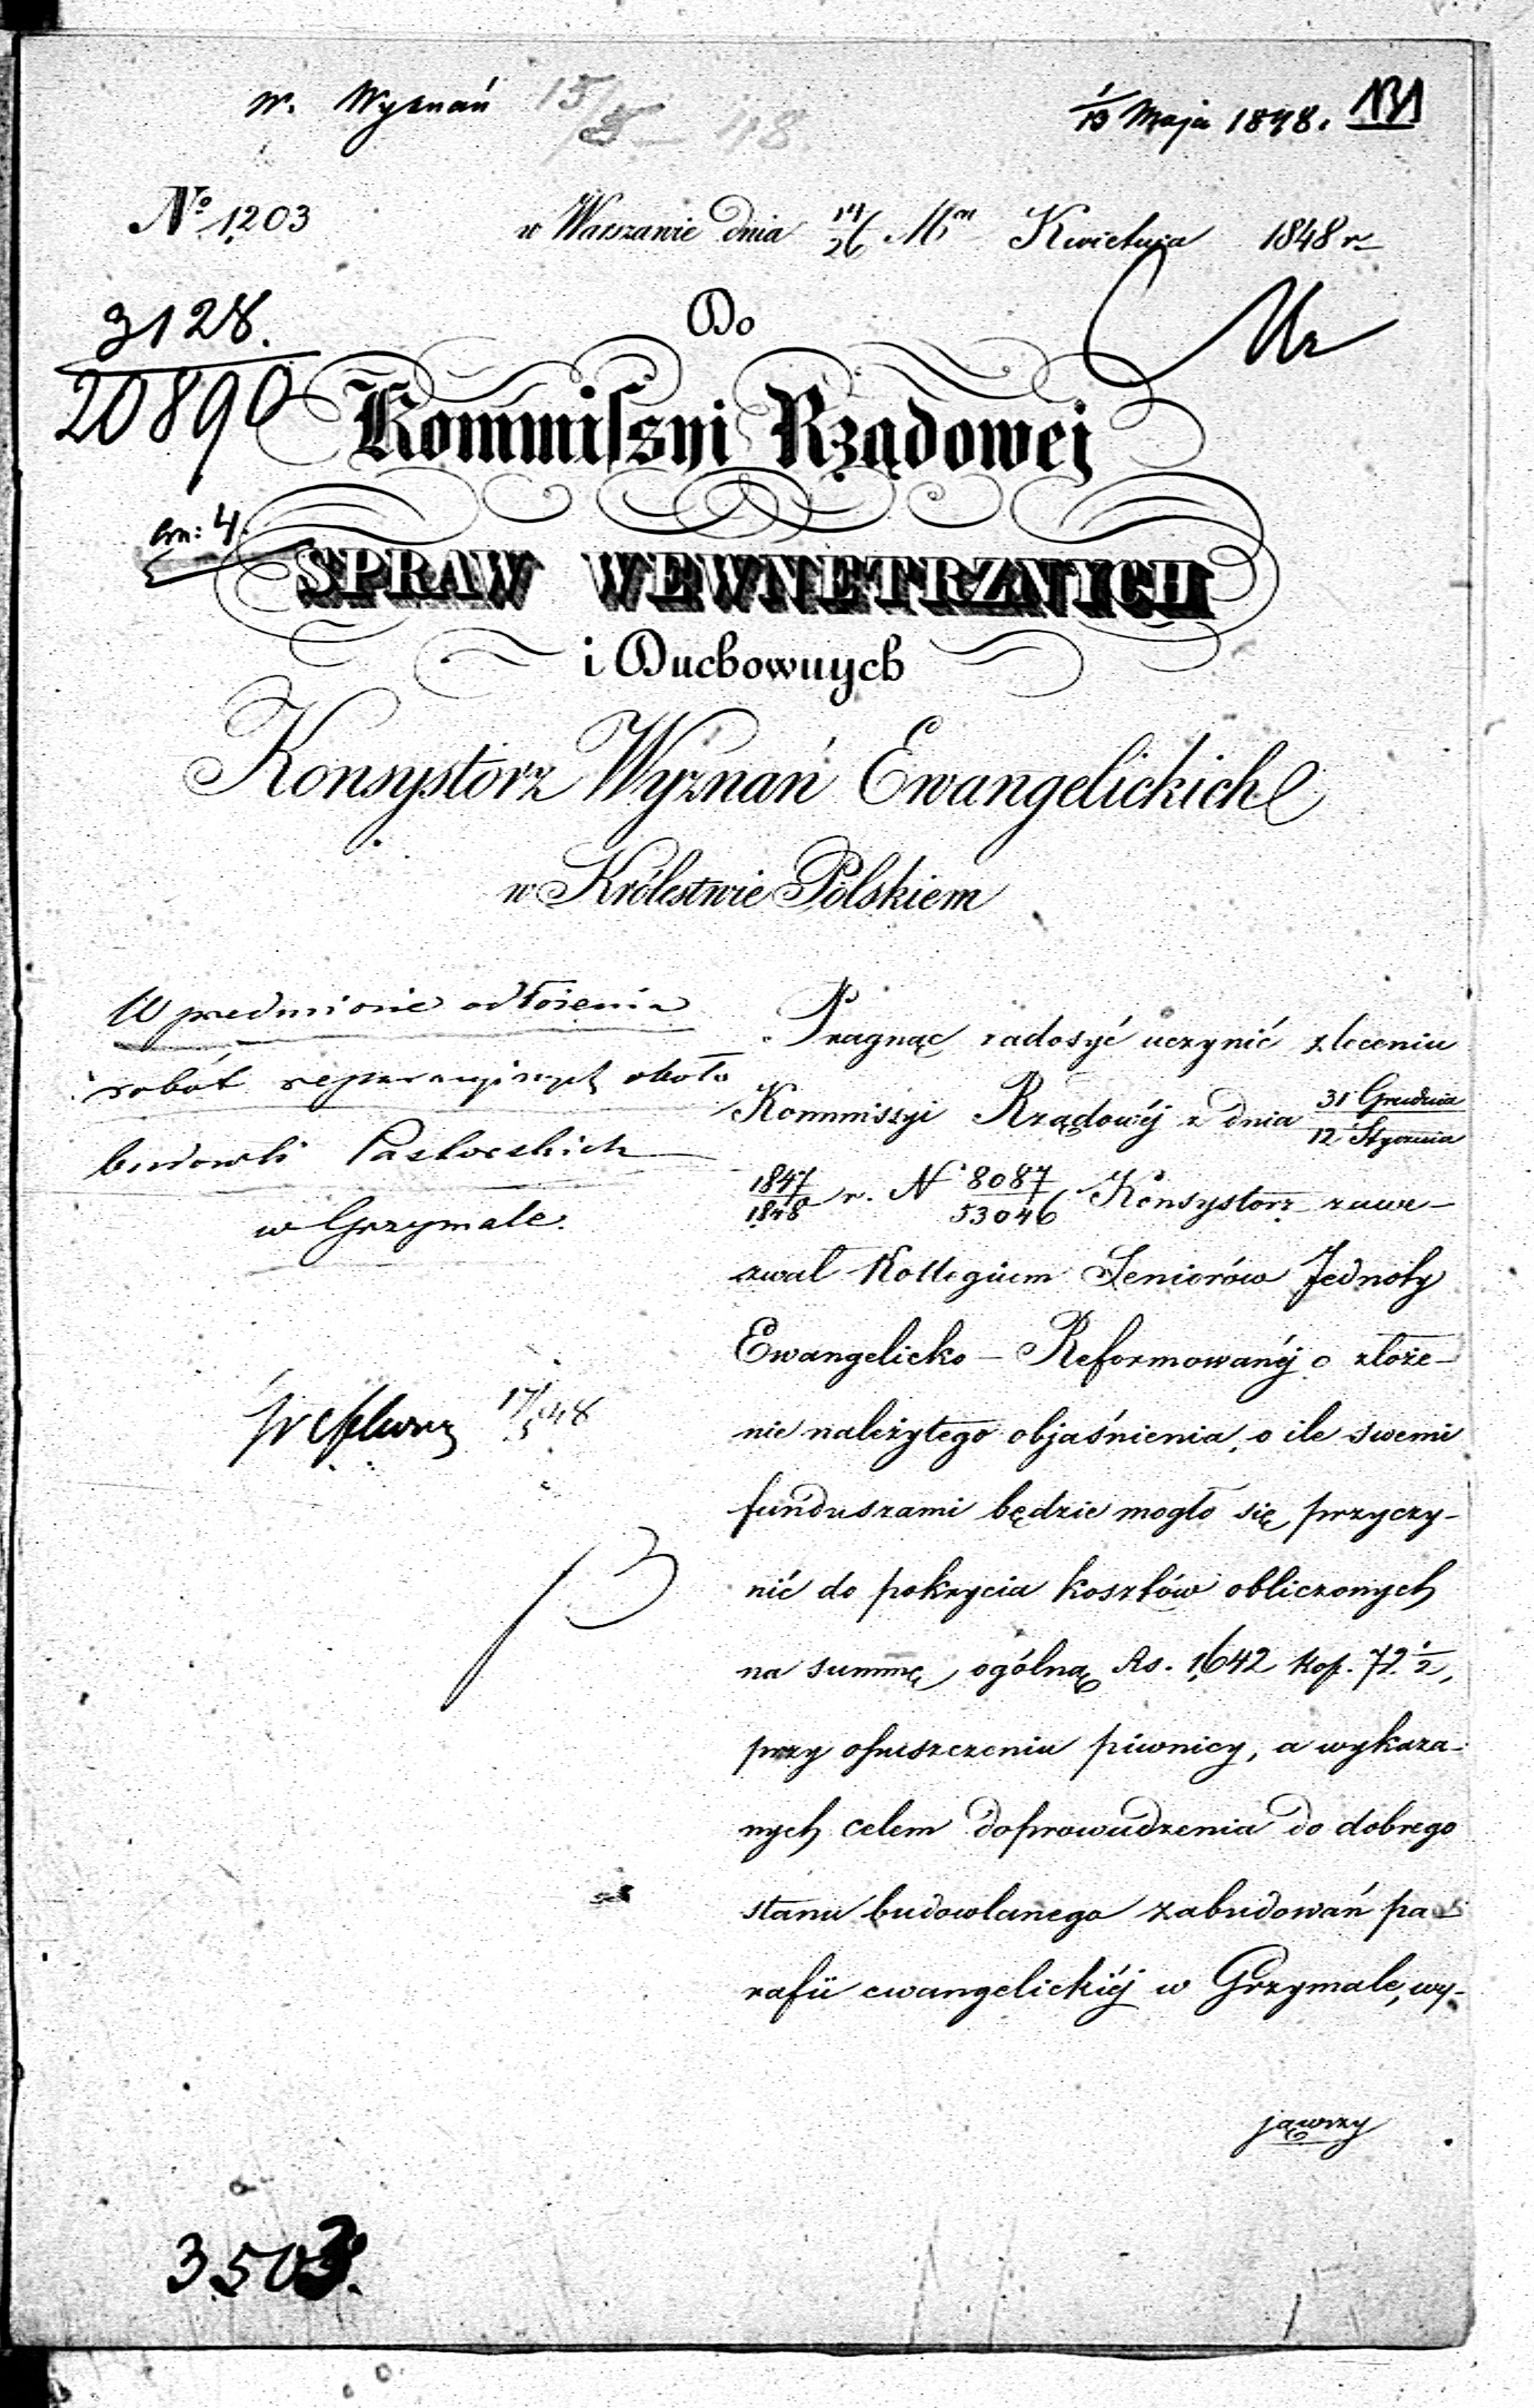 W. Wyznań 15/5 — 48.
1/13 Maja 1848. 131
№ 1203
w Warszawie dnia 14/26 Mca Kwietnia 1848 r
3128.
20890
Do
Kommissyi Rządowej
SPRAW WEWNĘTRZNYCH
i Duchownych
Konsystorz Wyznań Ewangelickich
w Królestwie Polskiem
W przedmiocie odłożenia
robót reparacyjnych około
budowli Pastorskich
w Grzymale.
17/5 48
Pragnąc zadosyć uczynić zleceniu
Kommissyi Rządowéj z dnia 31 Grudnia / 12 Stycznia
1847/1848 r. N 8087/53046 Konsystorz zawe-
zwał Kollegium Seniorów Jednoty
Ewangelicko - Reformowanéj o złoże-
nie należytego objaśnienia, o ile swemi
funduszami będzie mogło się przyczy-
nić do pokrycia kosztów obliczonych
na summę ogólną Rs. 1642 kop. 72 1/2,
przy opuszczeniu piwnicy, a wykaza-
nych celem doprowadzenia do dobrego
stanu budowlanego zabudowań pa-
rafii ewangelickiéj w Grzymale, wy-
jąwszy
3503.